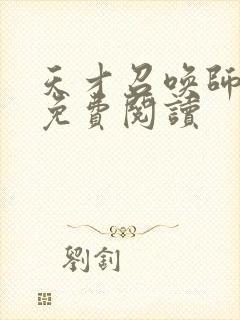 天才召唤師
免費閱讀
劉釗